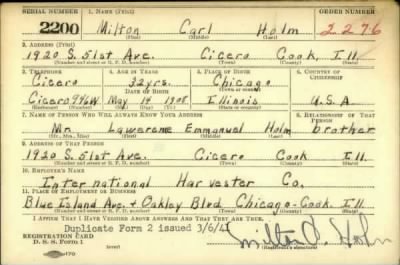 SERIAL NUMBER 1. NAME (Print) ORDER NUMBER
2200 Milton Carl Holm 2276
(First) (Middle) (Last)
2. ADDRESS (Print)
1920 S. 51st Ave. Cicero Cook, Ill.
(Number and street or R. F. D. number) (Town) (County) (State)
3. TELEPHONE 4. AGE IN YEARS 5. PLACE OF BIRTH 6. COUNTRY OF CITIZENSHIP
Cicero 32 yrs. Chicago
DATE OF BIRTH (Town or county)
Cicero 94W May 14 1908 Illinois U.S.A
(Exchange) (Number) (Mo.) (Day) (Yr.) (State or country)
7. NAME OF PERSON WHO WILL ALWAYS KNOW YOUR ADDRESS 8. RELATIONSHIP OF THAT PERSON
Mr. Lawerence Emmanuel Holm brother
(Mr., Mrs., Miss) (First) (Middle) (Last)
9. ADDRESS OF THAT PERSON
1920 S. 51st Ave. Cicero Cook Ill
(Number and street or R. F. D. number) (Town) (County) (State)
10. EMPLOYER'S NAME
International Harvester Co.
11. PLACE OF EMPLOYMENT OR BUSINESS
Blue Island Ave. + Oakley Blvd Chicago-Cook. Ill.
(Number and street or R. F. D. number) (Town) (County) (State)
I AFFIRM THAT I HAVE VERIFIED ABOVE ANSWERS AND THAT THEY ARE TRUE.
Duplicate Form 2 issued 3/6/41
REGISTRATION CARD
D. S. S. FORM 1
Milton C. Holm